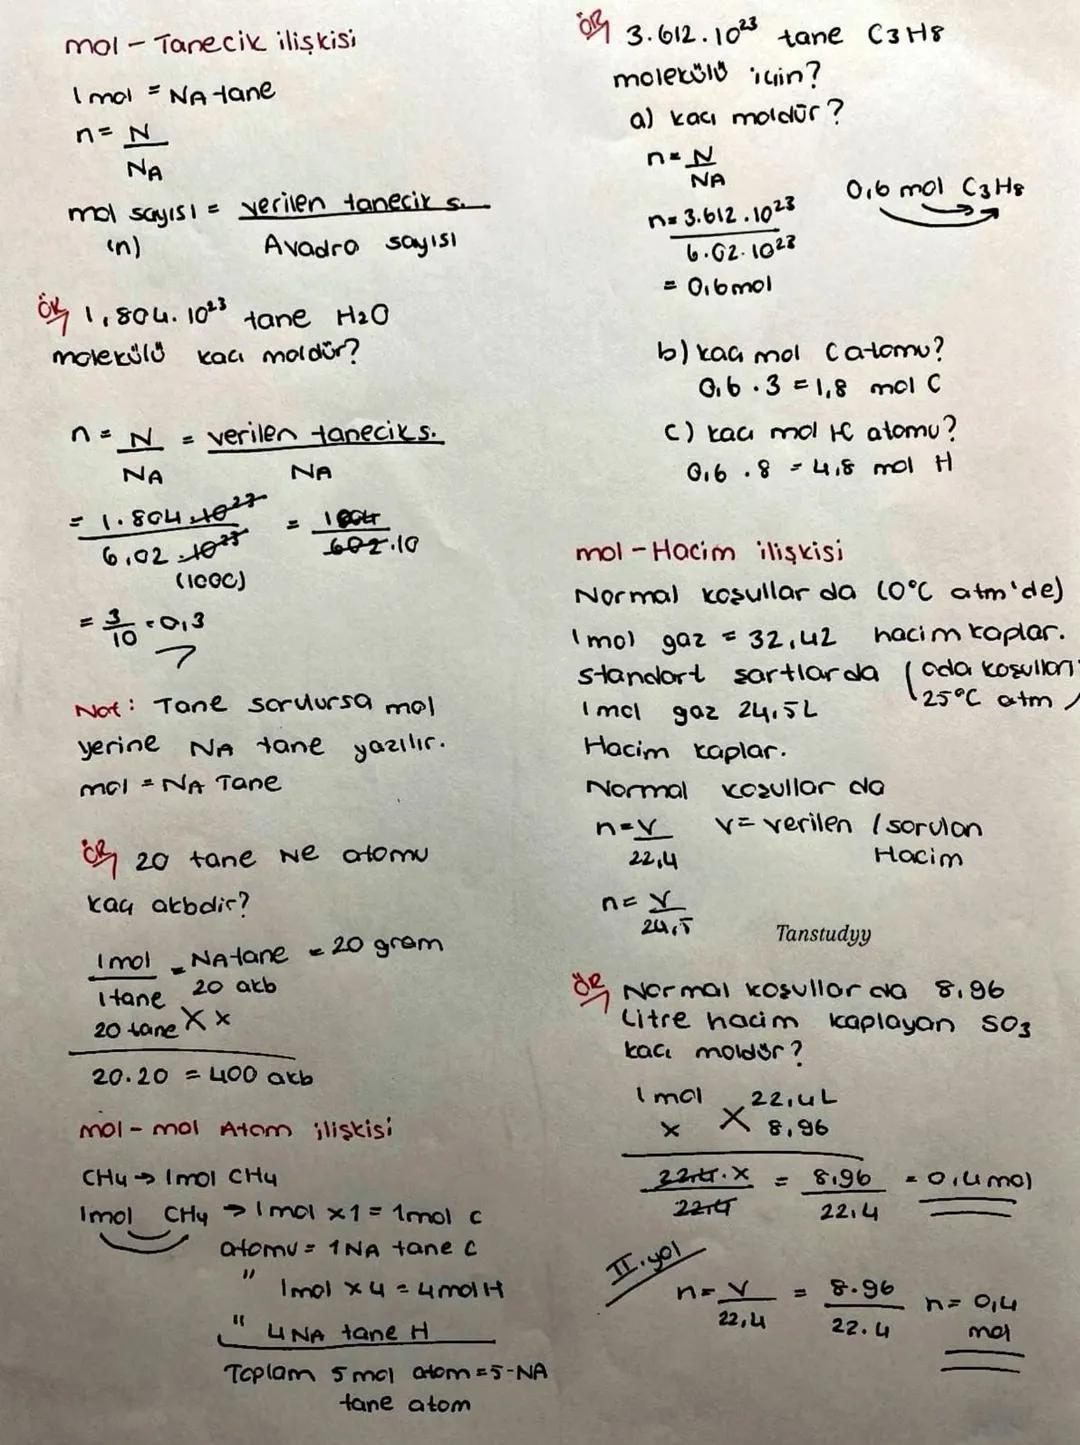 mol - Tanecik ilişkisi
1 mol = NA tane
n = N
NA
mol sayısı = verilen tanecik s.
(n) Avadro sayısı
ÖR 1,804.10²³ tane H2O
molekülü kaç moldür?
n = N = verilen tanecik s.
NA NA
= 1.804.10²³ = 1804
6,02.10²³ 602.10
(1000)
= 3 = 0,3
10
Not: Tane sorulursa mol
yerine NA tane yazılır.
mol = NA Tane
ÖR 20 tane Ne atomu
kaç akbdir?
1 mol = NA tane = 20 gram
1 tane 20 akb
20 tane X x
20.20 = 400 akb
mol - mol Atom ilişkisi
CH4 → 1 mol CH4
1 mol CH4 → 1 mol x1 = 1mol c
atomu = 1NA tane C
" 1mol x 4 = 4 mol H
" 4NA tane H
Toplam 5 mol atom = 5-NA
tane atom
ÖR 3.612.10²³ tane C3H8
molekülü için?
a) kaç moldür?
n = N
NA
0,6 mol C3H8
n = 3.612.10²³
6.02.10²³
= 0,6mol
b) kaç mol C atomu?
0,6 . 3 = 1,8 mol C
c) kaç mol H atomu?
0,6 . 8 = 4,8 mol H
mol - Hacim ilişkisi
Normal koşullar da (0°C atm'de)
1 mol gaz = 32,42 hacim kaplar.
standart şartlarda (oda koşulları
1 mol gaz 24,5L 25°C atm )
Hacim kaplar.
Normal koşullar da
n = V V = verilen / sorulan
22,4 Hacim
n = V
24,5
Tanstudyy
ÖR Normal koşullar da 8,96
Litre hacim kaplayan SO3
kaç moldür?
1 mol 22,4L
x X 8,96
22,4.x = 8,96 = 0,4 mol
22,4 22,4
II.yol
n = V = 8.96 n = 0,4
22,4 22.4 mol